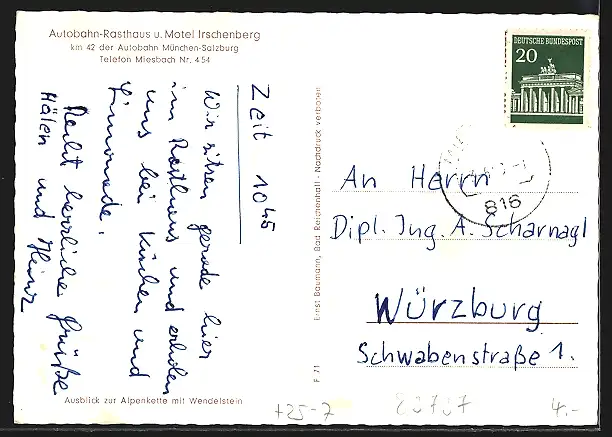 Autobahn-Rasthaus u. Motel Irschenberg
km 42 der Autobahn München-Salzburg
Telefon Miesbach Nr. 454
Zeit 10 45
Wir sitzen gerade hier
im Rasthaus und erholen
uns bei Kuchen und
Limonade.
Recht herzliche Grüße
und Heinz
Ausblick zur Alpenkette mit Wendelstein
Ernst Baumann, Bad Reichenhall - Nachdruck verboten
F 71
DEUTSCHE BUNDESPOST
20
816
An Herrn
Dipl. Ing. A. Scharnagl
Würzburg
Schwabenstraße 1.
+25-7
4.-